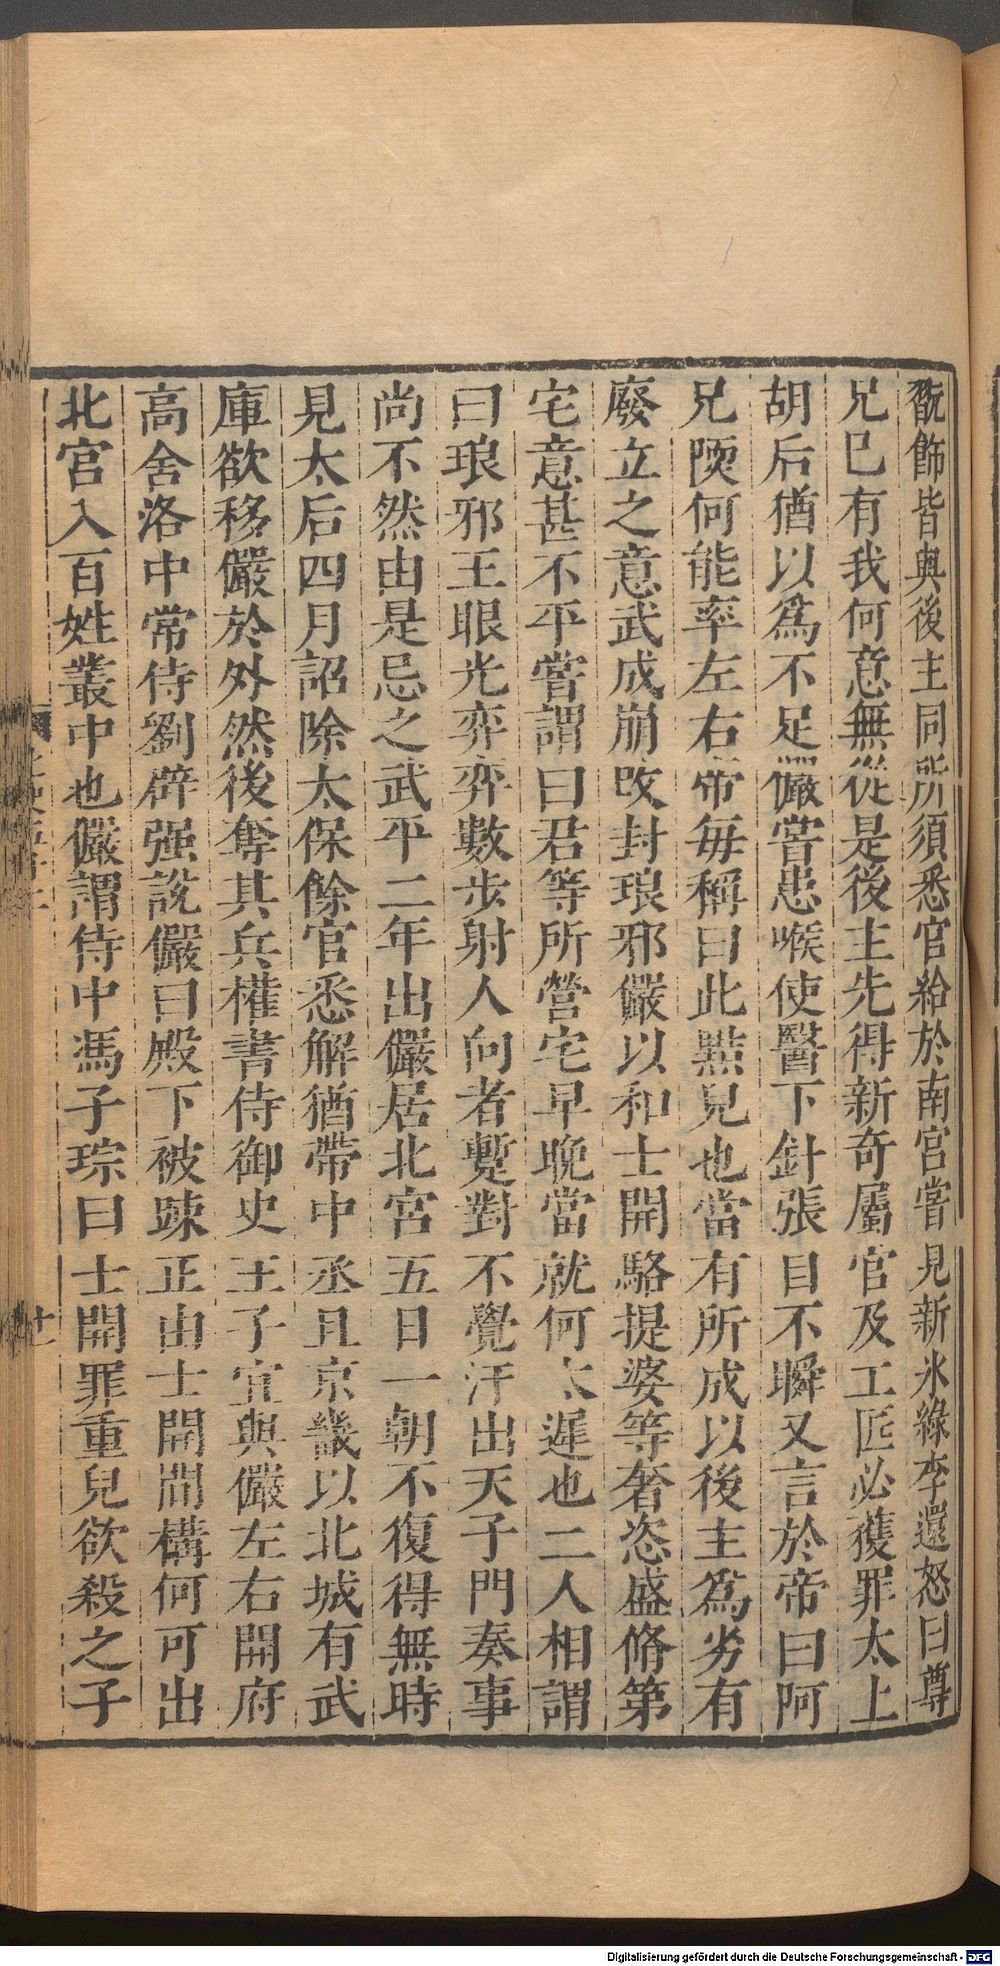 翫飾皆與後主同所須悉官給於南宮嘗見新氷綠李還怒曰尊
兄已有我何意無從是後主先得新奇屬官及工匠必獲罪太上
胡后猶以爲不足儼嘗患喉使醫下針張目不瞬又言於帝曰阿
兄陾何能率左右帝每稱曰此黠兒也當有所成以後主爲劣有
廢立之意武成崩改封琅邪儼以和士開駱提婆等奢恣盛脩第
宅意甚不平嘗謂曰君等所營宅早晚當就何太遲也二人相謂
曰琅邪王眼光弈弈數步射人向者蹔對不覺汗出天子門奏事
尚不然由是忌之武平二年出儼居北宮五日一朝不復得無時
見太后四月詔除太保餘官悉解猶帶中丞且京畿以北城有武
庫欲移儼於外然後奪其兵權書侍御史王子宜與儼左右開府
高舍洛中常侍劉辟强說儼曰殿下被踈正由士開間構何可出
北宮入百姓叢中也儼謂侍中馮子琮曰士開罪重兒欲殺之子
十一
Digitalisierung gefördert durch die Deutsche Forschungsgemeinschaft - DFG